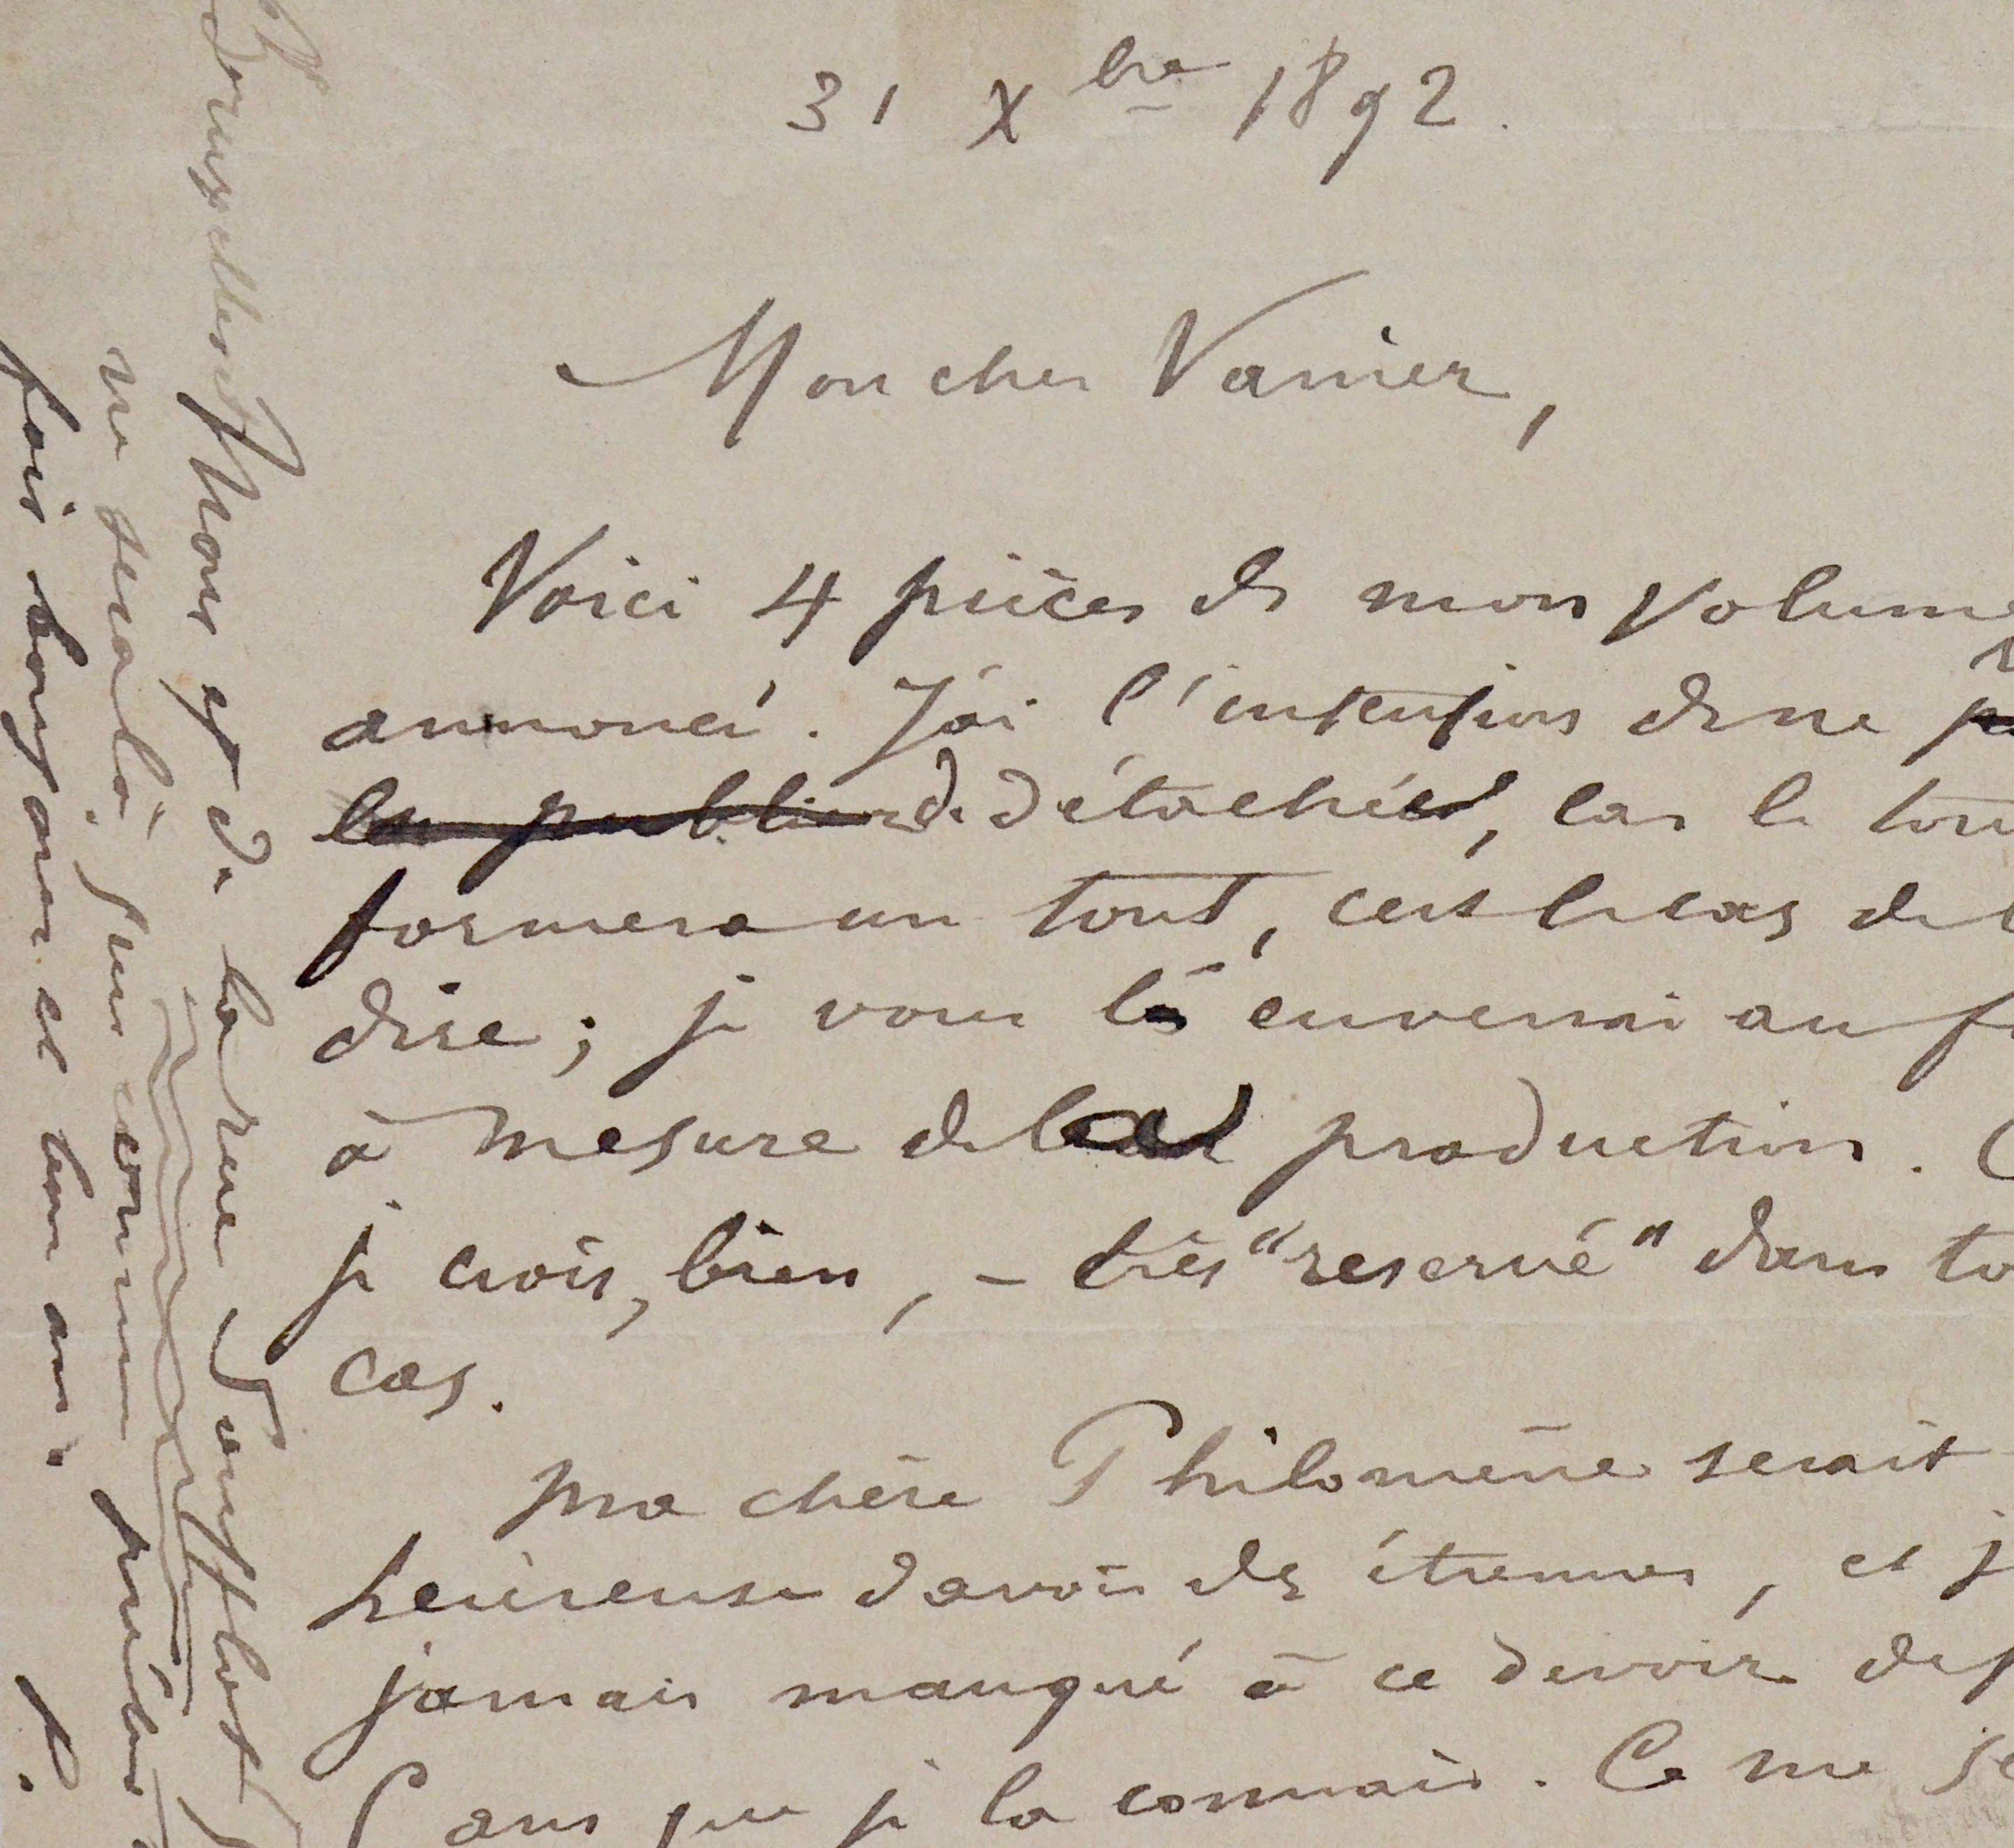 31 Xbre 1892.
Mon cher Vanier,
Voici 4 pièces de mon volume
annoncé. J'ai l'intention de ne
les publier de détachées, car le tou
formera un tout, c'est le cas de l
dire; je vous les enverrai au f
à mesure de la production. C
je crois, bien, – très "reservé" dans to
cas.
Ma chère Philomène serait
heureuse d'avoir des étrennes, et j
jamais manqué à ce devoir dep
ans que je la connais. Ce me se
Mons et de la rue
me
fois bonjour et bon an.
P.